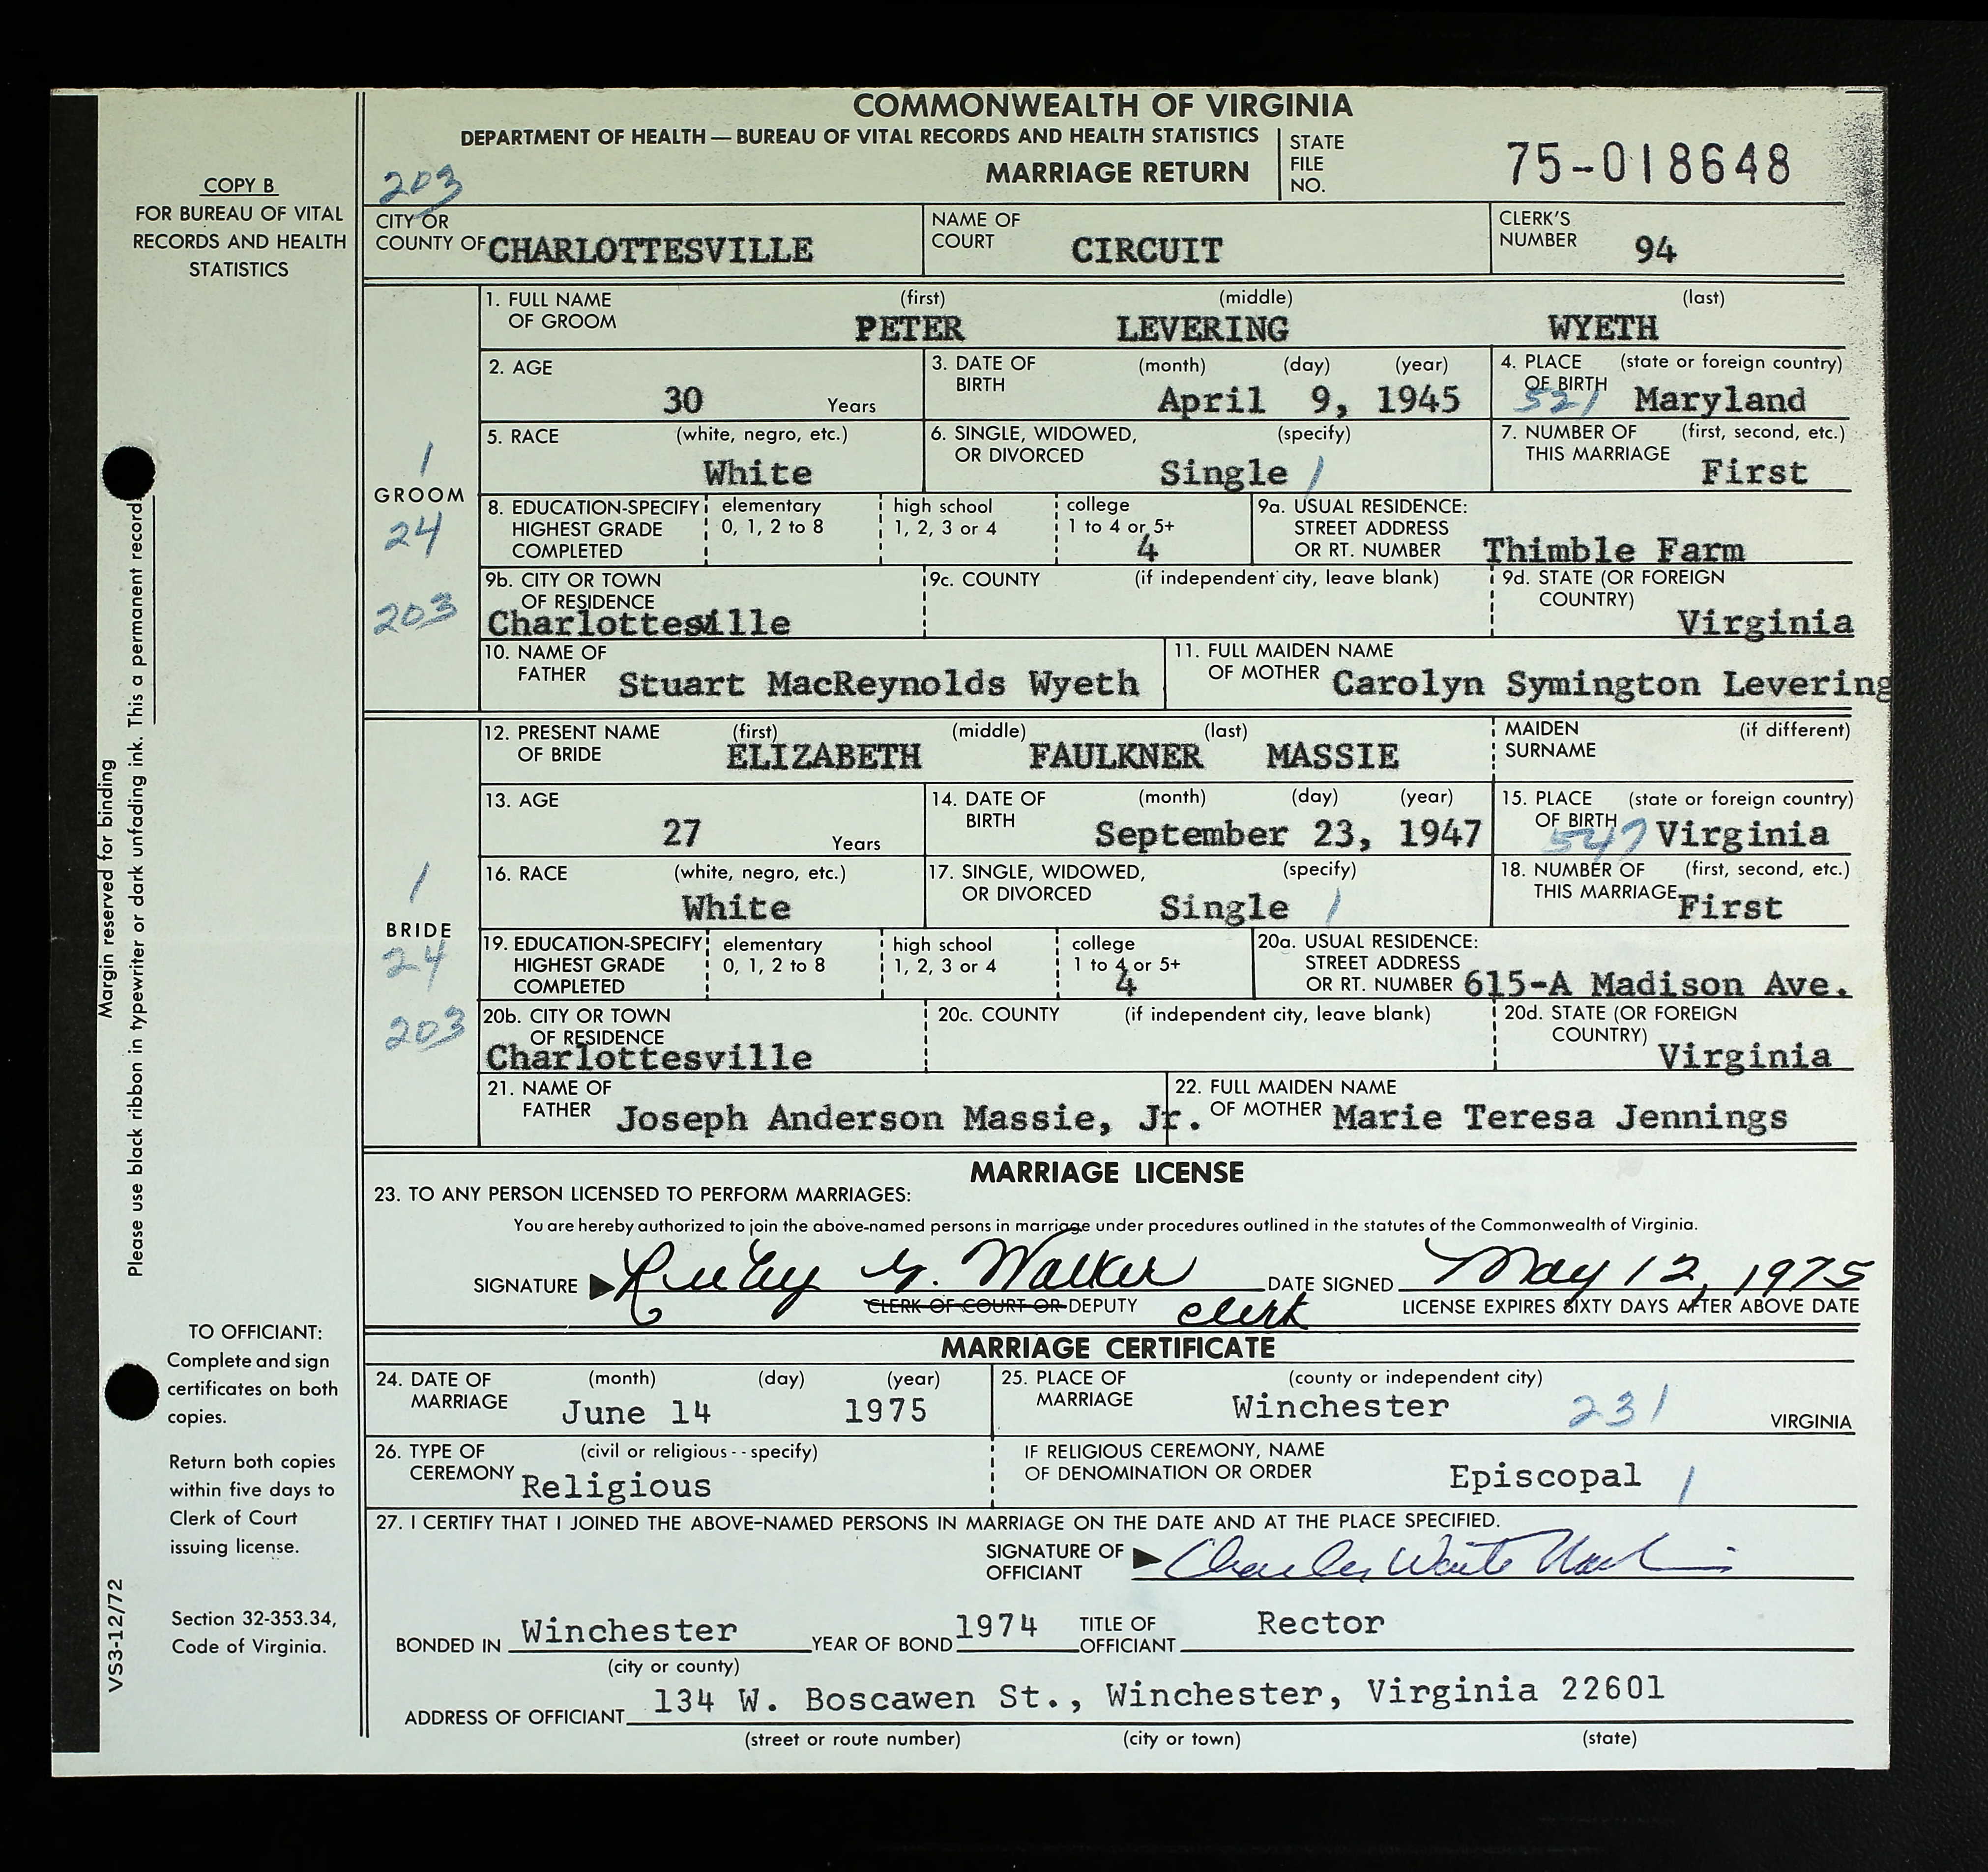 COMMONWEALTH OF VIRGINIA
DEPARTMENT OF HEALTH — BUREAU OF VITAL RECORDS AND HEALTH STATISTICS
MARRIAGE RETURN
STATE FILE NO. 75-018648
203
COPY B
FOR BUREAU OF VITAL
RECORDS AND HEALTH
STATISTICS
CITY OR COUNTY OF CHARLOTTESVILLE
NAME OF COURT CIRCUIT
CLERK'S NUMBER 94
GROOM
1
24
203
1. FULL NAME OF GROOM (first) PETER (middle) LEVERING (last) WYETH
2. AGE 30 Years
3. DATE OF BIRTH (month) (day) (year) April 9, 1945
4. PLACE OF BIRTH (state or foreign country) 521 Maryland
5. RACE (white, negro, etc.) White
6. SINGLE, WIDOWED, OR DIVORCED (specify) Single 1
7. NUMBER OF THIS MARRIAGE (first, second, etc.) First
8. EDUCATION-SPECIFY HIGHEST GRADE COMPLETED
elementary 0, 1, 2 to 8
high school 1, 2, 3 or 4
college 1 to 4 or 5+ 4
9a. USUAL RESIDENCE: STREET ADDRESS OR RT. NUMBER Thimble Farm
9b. CITY OR TOWN OF RESIDENCE Charlottesville
9c. COUNTY (if independent city, leave blank)
9d. STATE (OR FOREIGN COUNTRY) Virginia
10. NAME OF FATHER Stuart MacReynolds Wyeth
11. FULL MAIDEN NAME OF MOTHER Carolyn Symington Levering
BRIDE
1
24
203
12. PRESENT NAME OF BRIDE (first) ELIZABETH (middle) FAULKNER (last) MASSIE
MAIDEN SURNAME (if different)
13. AGE 27 Years
14. DATE OF BIRTH (month) (day) (year) September 23, 1947
15. PLACE OF BIRTH (state or foreign country) 547 Virginia
16. RACE (white, negro, etc.) White
17. SINGLE, WIDOWED, OR DIVORCED (specify) Single 1
18. NUMBER OF THIS MARRIAGE (first, second, etc.) First
19. EDUCATION-SPECIFY HIGHEST GRADE COMPLETED
elementary 0, 1, 2 to 8
high school 1, 2, 3 or 4
college 1 to 4 or 5+ 4
20a. USUAL RESIDENCE: STREET ADDRESS OR RT. NUMBER 615-A Madison Ave.
20b. CITY OR TOWN OF RESIDENCE Charlottesville
20c. COUNTY (if independent city, leave blank)
20d. STATE (OR FOREIGN COUNTRY) Virginia
21. NAME OF FATHER Joseph Anderson Massie, Jr.
22. FULL MAIDEN NAME OF MOTHER Marie Teresa Jennings
MARRIAGE LICENSE
23. TO ANY PERSON LICENSED TO PERFORM MARRIAGES:
You are hereby authorized to join the above-named persons in marriage under procedures outlined in the statutes of the Commonwealth of Virginia.
SIGNATURE Ruby G. Walker DATE SIGNED May 12, 1975
CLERK OF COURT OR DEPUTY clerk LICENSE EXPIRES SIXTY DAYS AFTER ABOVE DATE
MARRIAGE CERTIFICATE
24. DATE OF MARRIAGE (month) (day) (year) June 14 1975
25. PLACE OF MARRIAGE (county or independent city) Winchester 231 VIRGINIA
26. TYPE OF CEREMONY (civil or religious -- specify) Religious
IF RELIGIOUS CEREMONY, NAME OF DENOMINATION OR ORDER Episcopal 1
27. I CERTIFY THAT I JOINED THE ABOVE-NAMED PERSONS IN MARRIAGE ON THE DATE AND AT THE PLACE SPECIFIED.
SIGNATURE OF OFFICIANT Charles
BONDED IN Winchester YEAR OF BOND 1974 TITLE OF OFFICIANT Rector
(city or county)
ADDRESS OF OFFICIANT 134 W. Boscawen St., Winchester, Virginia 22601
(street or route number) (city or town) (state)
Margin reserved for binding
Please use black ribbon in typewriter or dark unfading ink. This a permanent record.
TO OFFICIANT:
Complete and sign
certificates on both
copies.
Return both copies
within five days to
Clerk of Court
issuing license.
Section 32-353.34,
Code of Virginia.
VS3-12/72